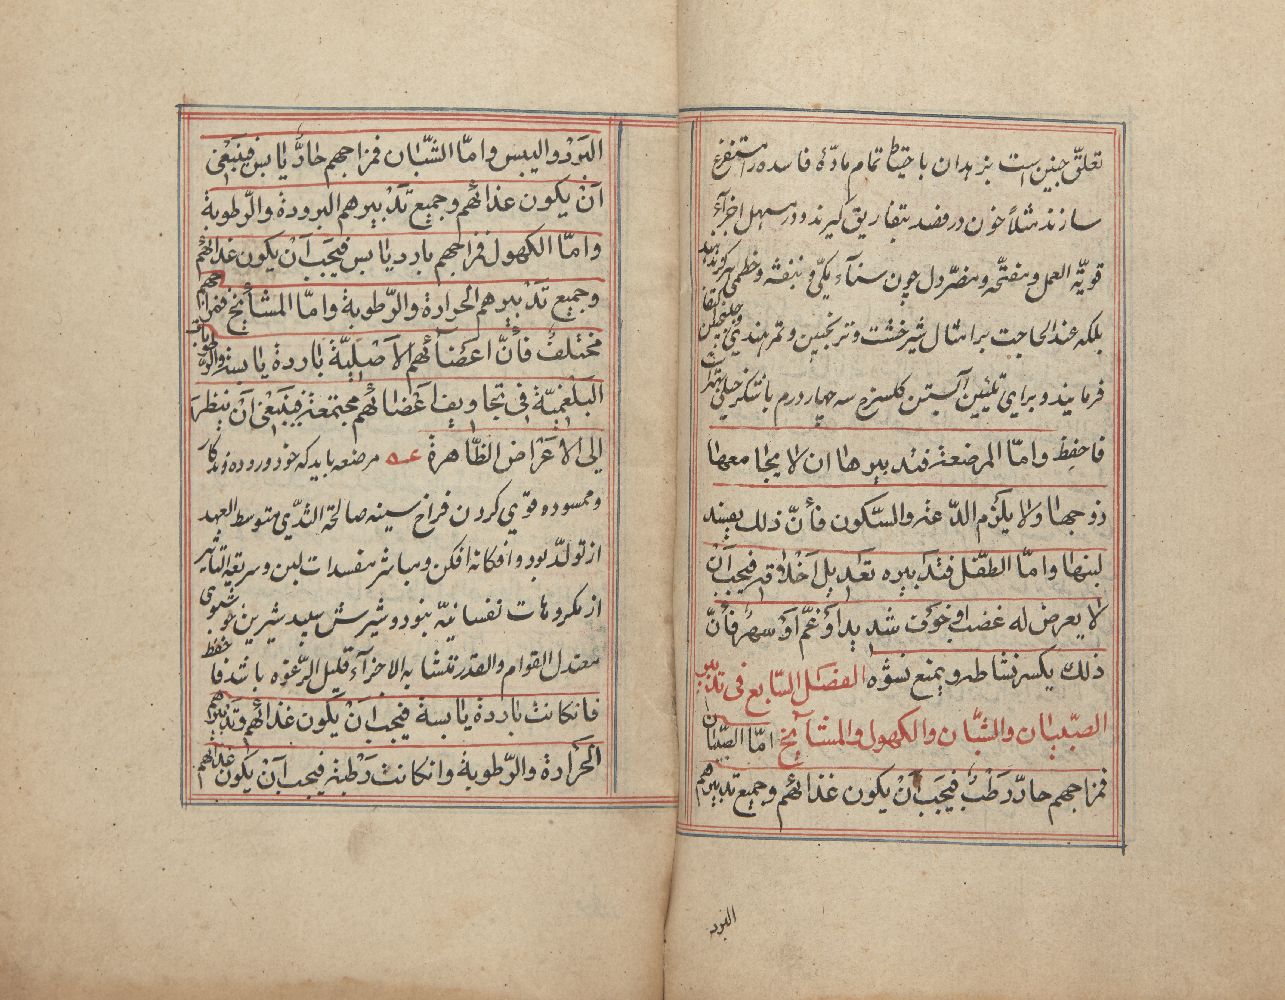 تعلّق جنین است بزهدان باحتیاط تمام مادّهٔ فاسده را استفرغ
سازند مثلاً خون در فصد بتفاریق گیرند و در مسهل اجزآء
قویّة العمل و مفتحّه و مضرّ دل چون سنآء مکّی و بنفشه و خطمی
بلکه عند الحاجت بر امثال شیرخشت و ترنجبین و تمر هندی
فرمایند و برای تلیین آبستن گلسرخ سه چهار درم با شکر خیلی
فاحفظ وامّا المرضعة فتدبیرها ان لا یجامعها
زوجها ولا یلزم الدّعة والسّکون فأنّ ذلك یفسد
لبنها وامّا الطفل فتدبیره تعدیل اخلاقه فیجب آن
لا یعرض له غضب وخوف شدید اَو غمّ اَو سهر فأنّ
ذلك یکسر نشاطه و یمنع نشوّه الفصل السّابع فی تدبیر
الصّبیان والشّبّان والکهول والمشآیخ امّا الصّبیان
فمزاجهم حارّ رَطْب فیَجَب آنْ یکون غذائهم وجمیع تدبیرهم
البرد
البَرْد والیبس وامّا الشّبّان فمزاجهم حادٌّ یابس فینبغی
آنْ یکون غذائهم وجمیع تدْبیرهم البرودة والرّطوبة
وامّا الکهول فمزاجهم بارد یابس فیَجَب آنْ یکون غذائهم
وجمیع تدْبیرهم الحرارة والرّطوبة وامّا المشأیخ فمزاجهم
مختلفٌ فأنّ اعضآئهم الاَصْلیّة باردة یابسة والرّطوبات
البَلْغمیّة فی تجاویف اَعْضائهم مجتمعة فینبغی اَنْ ینظر
الی الاَعْرَاض الظّاهرة مرضعه باید که خود و روده زیدکار
و ممسوده قوّی کردن فراخ سینه صالحة الثدّی متوسط العهد
از تولدّ بود و افکانه افکن و مباشر مفسدات لبن و سریعة التأثیر
از مکروهات نفسانیّه بنود و شیرش سپید شیرین خوشبوی
معتدل القوام والقدر متشابه الاجزآء قلیل الرّغوه باشد فاحفظ
فانکانت باردة یابسة فیجب اَنْ یکون غذائهم وتدبیرهم
الحَرارة والرّطوبة وانکانت رَطْبة فیجب آنْ یکون غذائهم